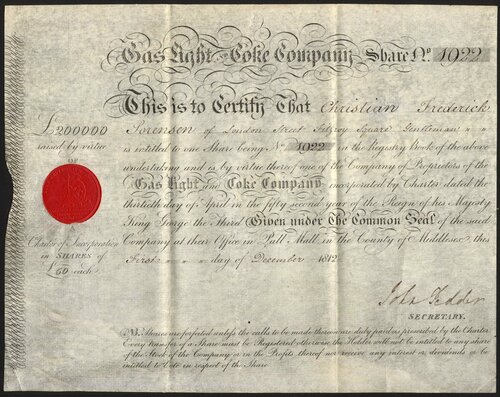 Gas Light and Coke Company, Share No. 1022
This is to Certify That Christian Frederick
Sorensen of London Street Fitzroy Square Gentleman
is entitled to one Share being No. 1022 in the Registry Book of the above
undertaking and is by virtue thereof one of the Company of Proprietors of the
Gas Light and Coke Company incorporated by Charter dated the
thirtieth day of April in the fifty second year of the Reign of his Majesty
King George the third Given under the Common Seal of the said
Company at their Office in Pall Mall in the County of Middlesex this
First day of December 1812
£200000
raised by virtue
OF
Charter of Incorporation
in SHARES of
£50 each
SECRETARY.
NB. Shares are forfeited unless the calls to be made thereon are duly paid as prescribed by the Charter
Every transfer of a Share must be Registered otherwise the Holder will not be entitled to any share
of the Stock of the Company or in the Profits thereof nor receive any interest or dividends or be
entitled to Vote in respect of the Share